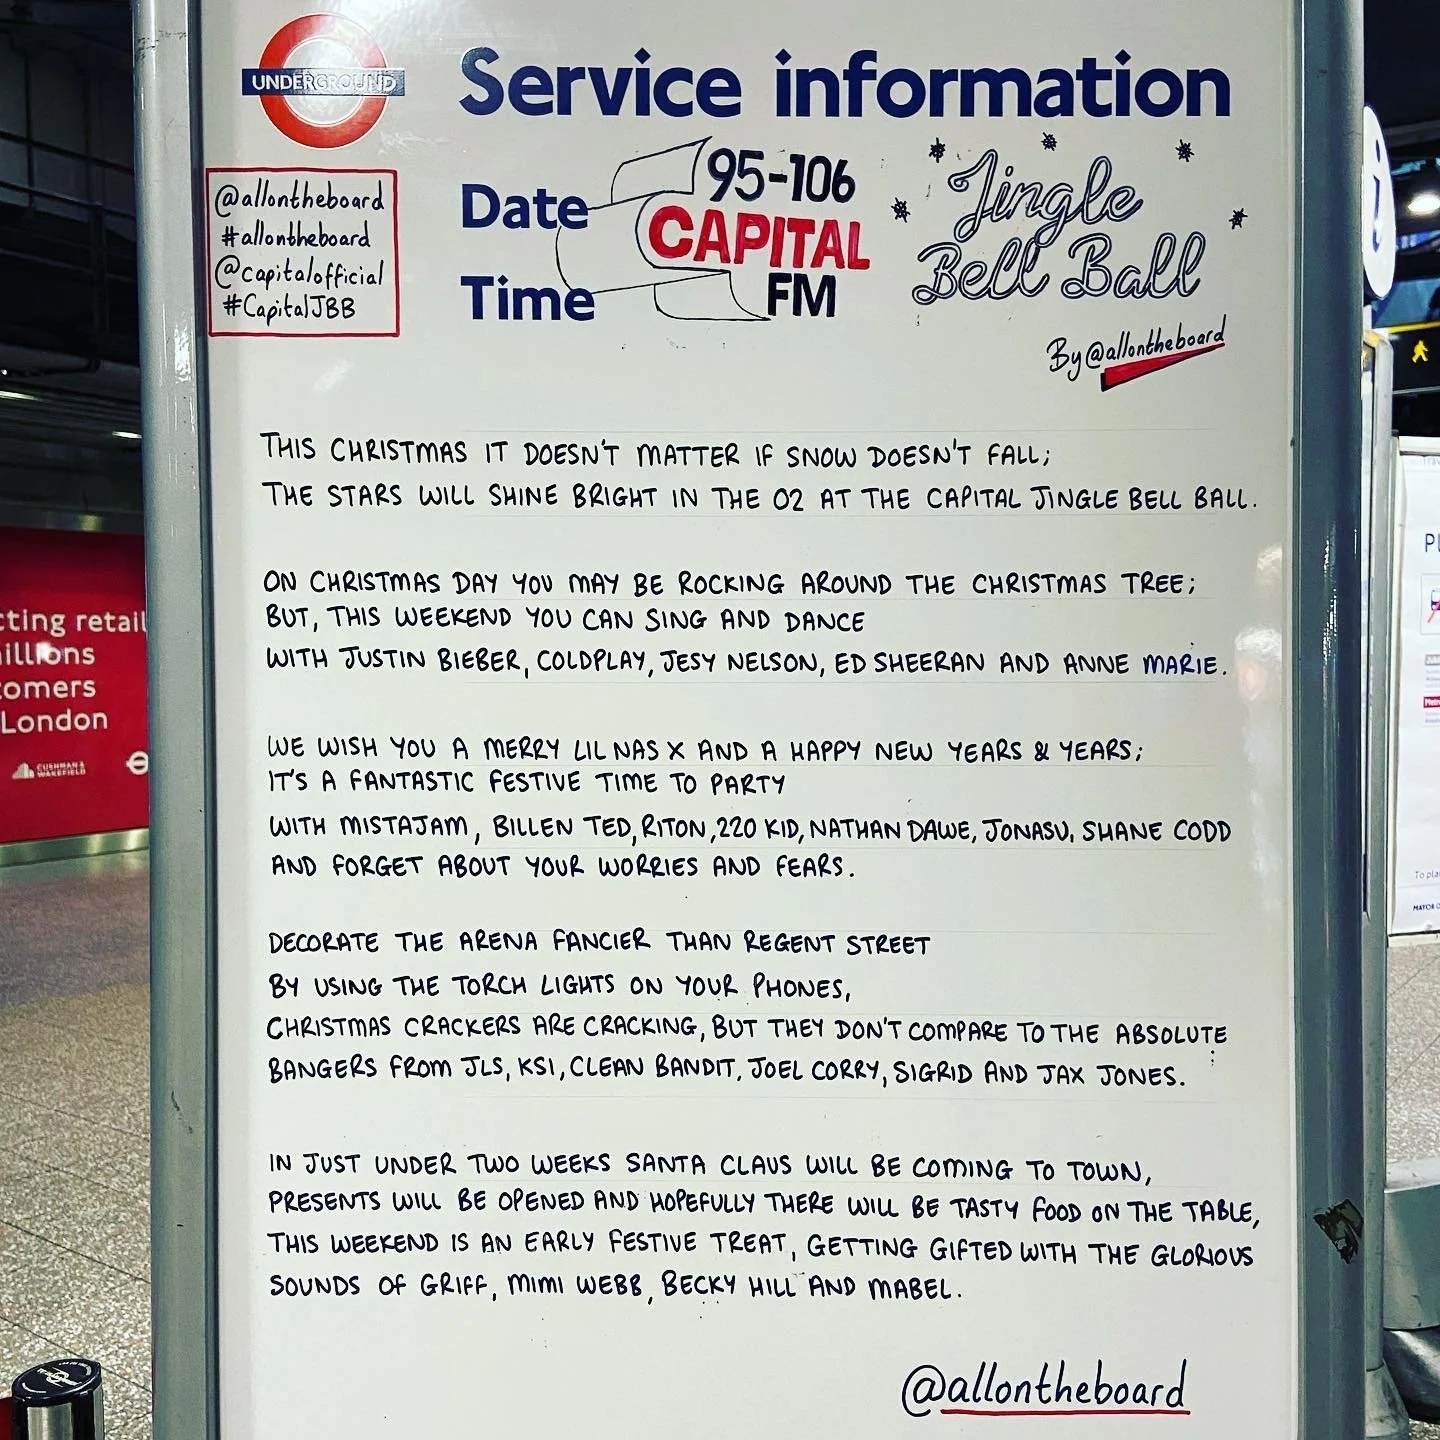 UNDERGROUND
Service information
@allontheboard
#allontheboard
@capitalofficial
#CapitalJBB
Date
Time
95-106
CAPITAL
FM
Jingle
Bell Ball
By @allontheboard
THIS CHRISTMAS IT DOESN'T MATTER IF SNOW DOESN'T FALL;
THE STARS WILL SHINE BRIGHT IN THE O2 AT THE CAPITAL JINGLE BELL BALL.
ON CHRISTMAS DAY YOU MAY BE ROCKING AROUND THE CHRISTMAS TREE;
BUT, THIS WEEKEND YOU CAN SING AND DANCE
WITH JUSTIN BIEBER, COLDPLAY, JESY NELSON, ED SHEERAN AND ANNE MARIE.
WE WISH YOU A MERRY LIL NAS X AND A HAPPY NEW YEARS & YEARS;
IT'S A FANTASTIC FESTIVE TIME TO PARTY
WITH MISTAJAM, BILLEN TED, RITON, 220 KID, NATHAN DAWE, JONASU, SHANE CODD
AND FORGET ABOUT YOUR WORRIES AND FEARS.
DECORATE THE ARENA FANCIER THAN REGENT STREET
BY USING THE TORCH LIGHTS ON YOUR PHONES,
CHRISTMAS CRACKERS ARE CRACKING, BUT THEY DON'T COMPARE TO THE ABSOLUTE
BANGERS FROM JLS, KSI, CLEAN BANDIT, JOEL CORRY, SIGRID AND JAX JONES.
IN JUST UNDER TWO WEEKS SANTA CLAUS WILL BE COMING TO TOWN,
PRESENTS WILL BE OPENED AND HOPEFULLY THERE WILL BE TASTY FOOD ON THE TABLE,
THIS WEEKEND IS AN EARLY FESTIVE TREAT, GETTING GIFTED WITH THE GLORIOUS
SOUNDS OF GRIFF, MIMI WEBB, BECKY HILL AND MABEL.
@allontheboard
cting retail
illions
tomers
London
CUSHMAN &
WAKEFIELD
i
Pl
To pla
MAYOR O